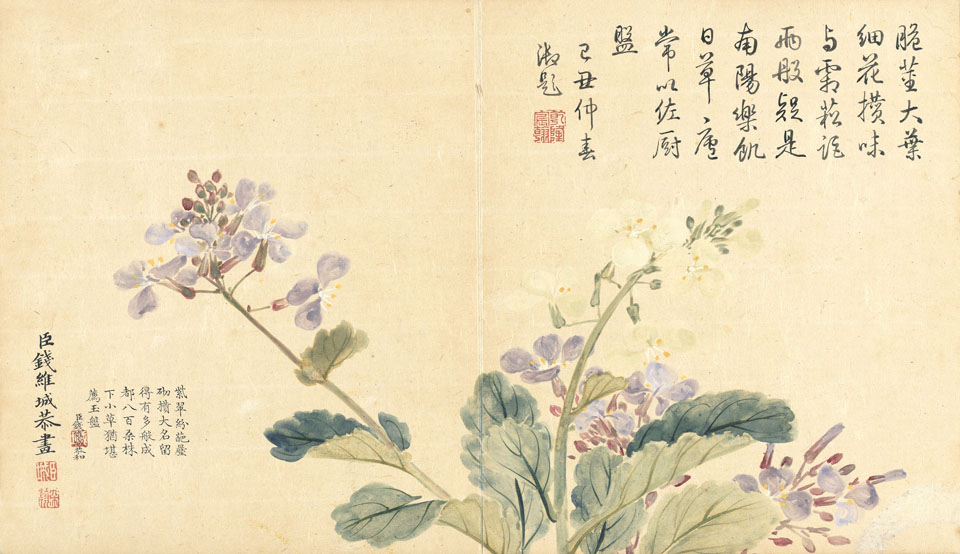 脆莖大葉
細花攢味
与霜菘詎
兩般疑是
南陽樂飢
日草、廬
常以佐厨
盤
己丑仲春
御題
乾隆宸翰
紫翠紛葩壓
砌攢大名留
得有多般成
都八百桑株
下小草猶堪
薦玉盤
恭和
臣錢維城恭畫